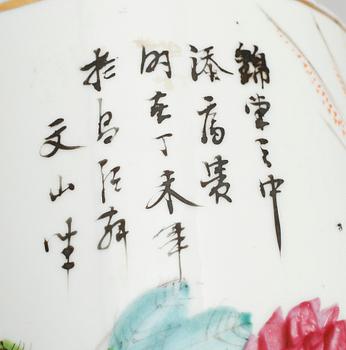 錦堂之中
添富貴
時在丁未年
於昌江軒
文山坐